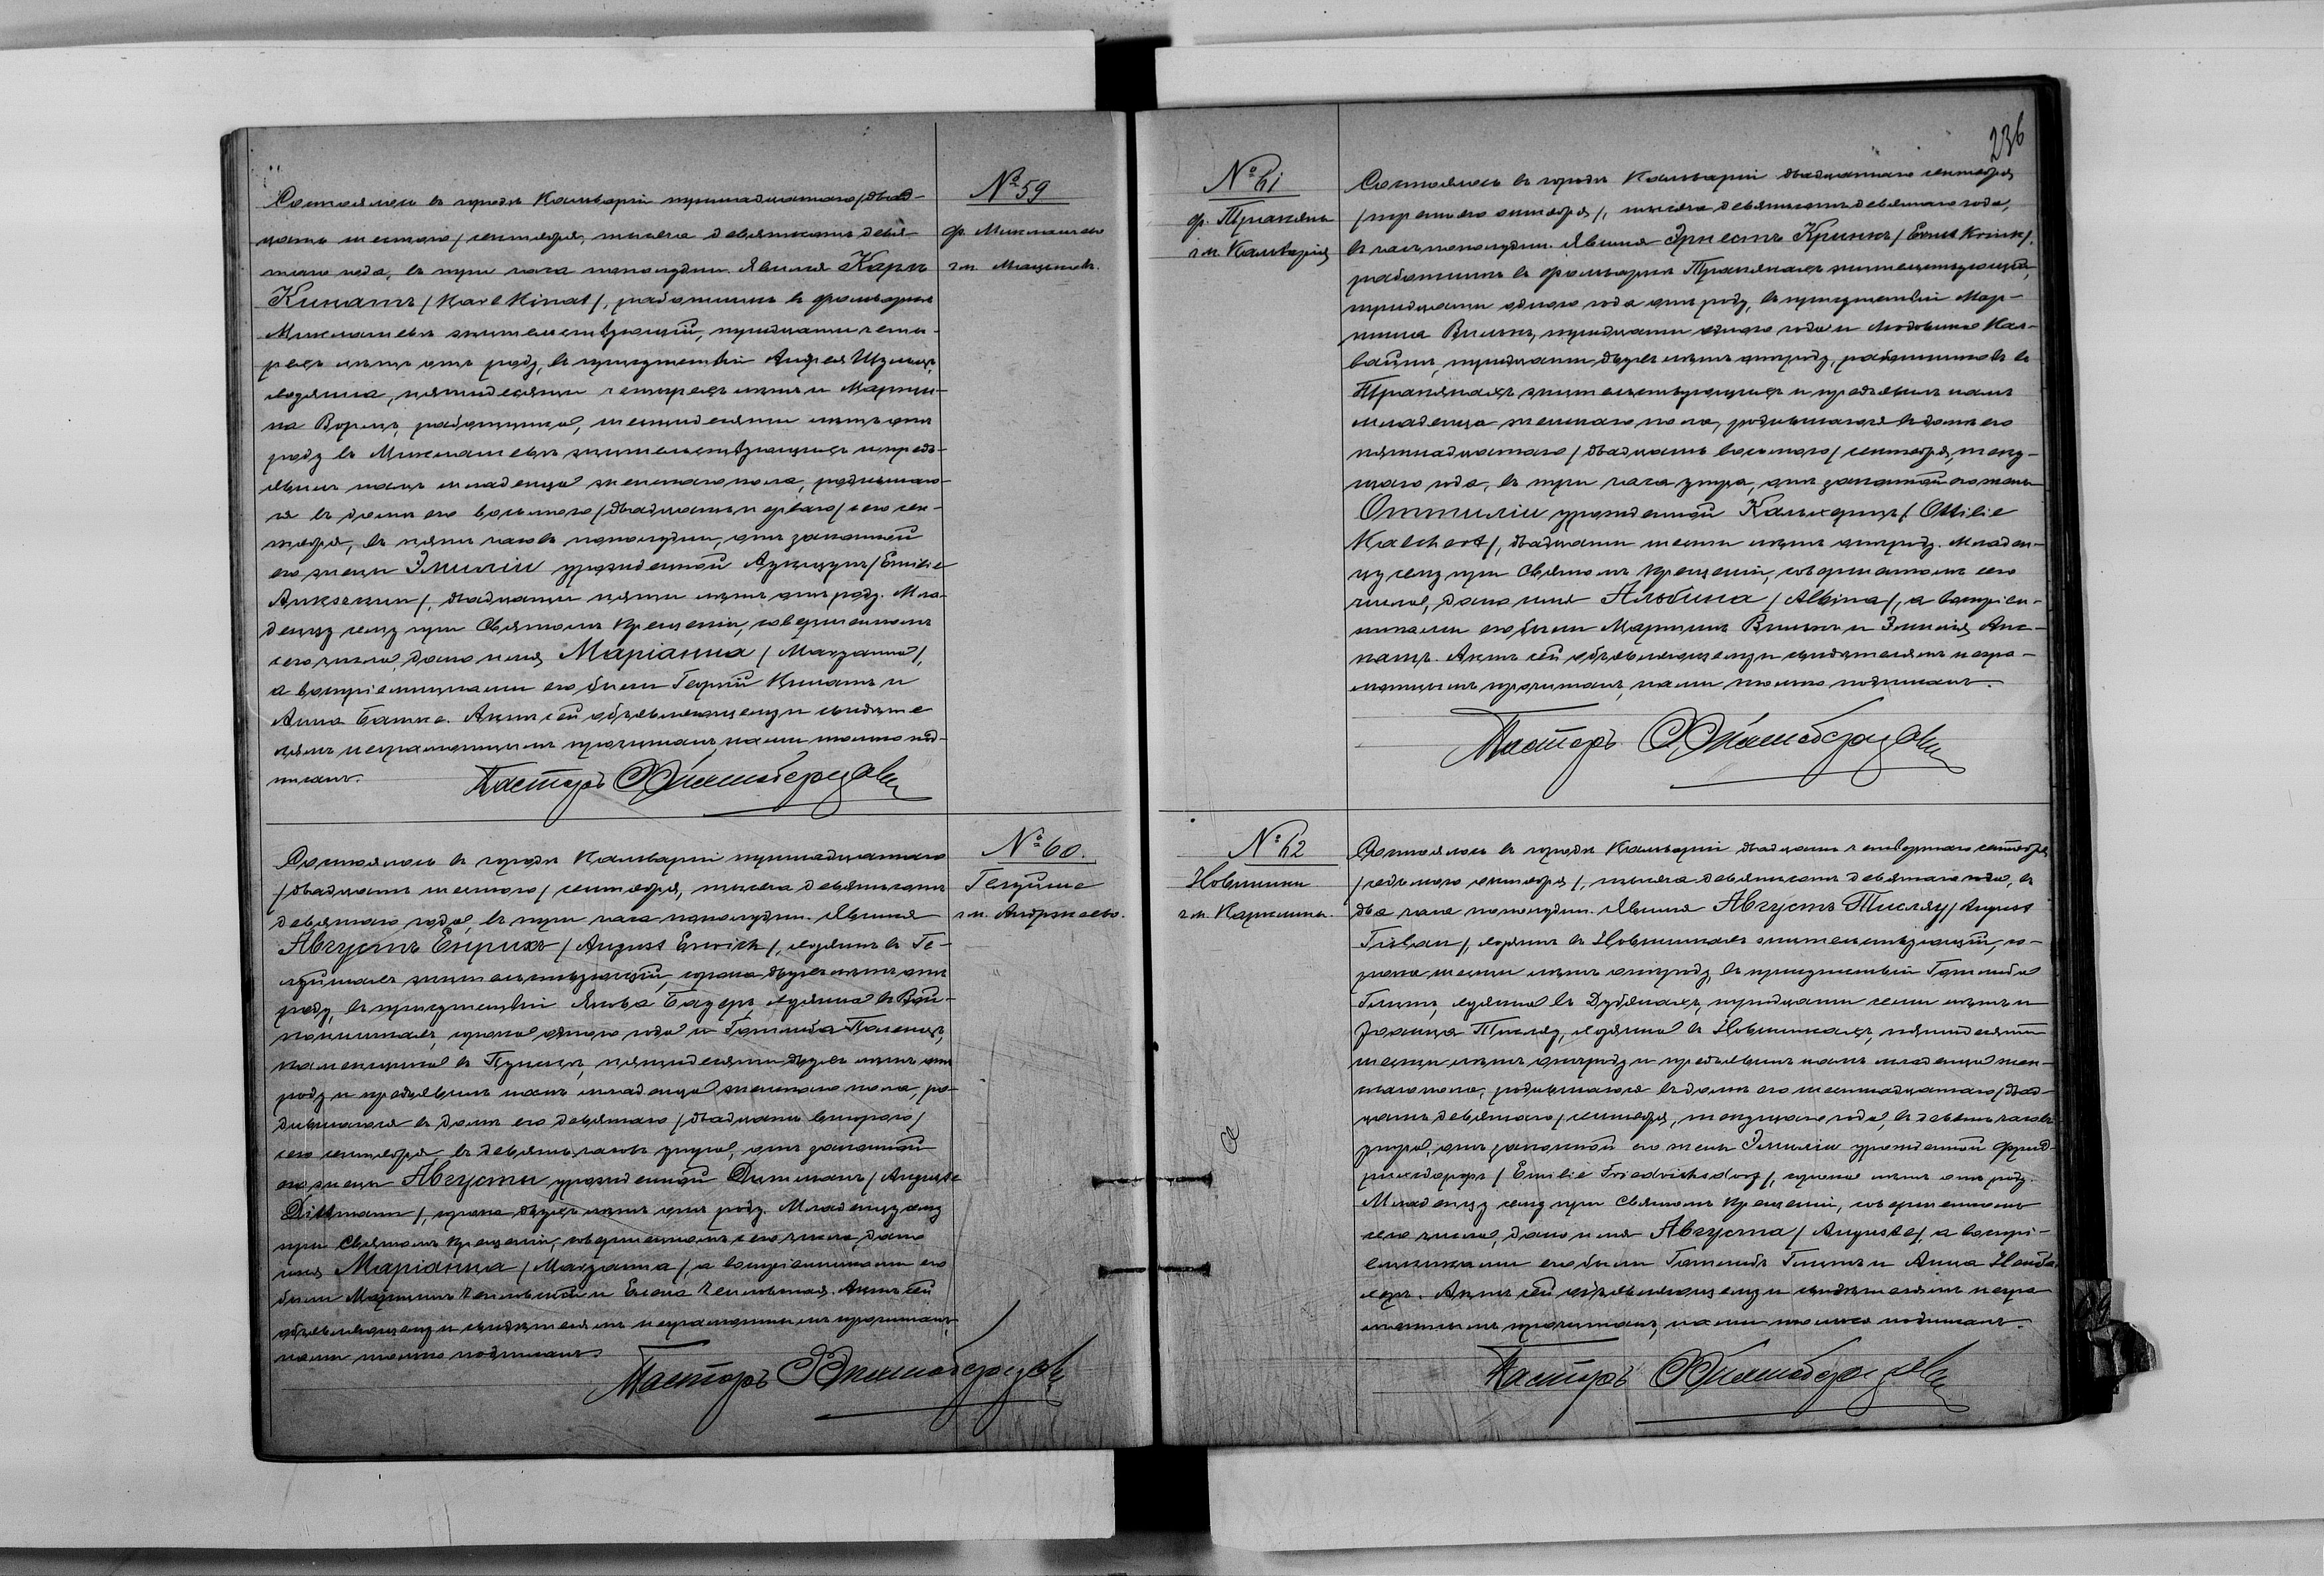 № 59
ф. Миклашево
гм.
Состоялось въ городѣ Кальваріи тринадцатаго /двад-
цать шестого/ сентября, тысяча девятьсотъ девя-
таго года, въ три часа пополудни. Явился Карлъ
Кинатъ /Karl Kinat/, работникъ въ фольваркѣ
Миклашевѣ жительствующій, тридцати четы-
рехъ лѣтъ отъ роду, въ присутствіи Андрея Шульца,
хозяина, пятидесяти четырехъ лѣтъ и Марти-
на работника, шестидесяти лѣтъ отъ
роду въ Миклашевѣ жительствующихъ и предъ-
явилъ намъ младенца женскаго пола, родившаго-
ся въ домѣ его восьмого /двадцать перваго/ сего сен-
тября, въ пять часовъ пополудни, отъ законной
его жены Эмиліи урожденной /Emilie
двадцати пяти лѣтъ отъ роду. Мла-
денцу сему при Святомъ Крещеніи, совершенномъ
сего числа, дано имя Маріанна /Maryanna/,
а воспріемниками его были Георгій Кинатъ и
Анна Актъ сей объявляющему и свидѣте-
лямъ неграмотнымъ прочитанъ, нами только под-
писанъ.
Пасторъ
№ 60.
гм. Андржеево.
Состоялось въ городѣ Кальваріи тринадцатаго
/двадцать шестого/ сентября, тысяча девятьсотъ
девятаго года, въ три часа пополудни. Явился
Августъ Енрихъ /August Enrich/, хозяинъ въ Ге-
жительствующій, сорока двухъ лѣтъ отъ
роду, въ присутствіи Якова хозяина въ
сорока одного года и Готлиба
въ пятидесяти двухъ лѣтъ отъ
роду и предъявилъ намъ младенца женскаго пола, ро-
дившагося въ домѣ его девятаго /двадцать второго/
сего сентября въ девять часовъ утра, отъ законной
его жены Августы урожденной Дитманъ /Auguste
Dittmann/, сорока двухъ лѣтъ отъ роду. Младенцу сему
при Святомъ Крещеніи, совершенномъ сего числа, дано
имя Маріанна /Maryanna/, а воспріемниками его
были Мартинъ и Елена Актъ сей
объявляющему и свидѣтелямъ неграмотнымъ прочитанъ,
нами только подписанъ.
Пасторъ
236
№ 61
ф. Траляны
гм. Кальварія
Состоялось въ городѣ Кальваріи двадцатаго сентября
/третьяго октября/, тысяча девятьсотъ девятаго года,
въ часъ пополудни. Явился Эрнестъ Кринкъ /Ernst Krink/,
работникъ въ фольваркѣ жительствующій,
тридцати одного года отъ роду, въ присутствіи Мар-
тина тридцати одного года и Людовика Кал-
тридцати двухъ лѣтъ отъ роду, работниковъ въ
жительствующихъ и предъявилъ намъ
младенца женскаго пола, родившагося въ домѣ его
пятнадцатаго /двадцать восьмого/ сентября, теку-
щаго года, въ три часа утра, отъ законной его жены
Оттиліи урожденной Кальхертъ /Ottilie
Kalchert/, двадцати шести лѣтъ отъ роду. Младен-
цу сему при Святомъ Крещеніи, совершенномъ сего
числа, дано имя Альбина /Albina/, а воспріем-
никами его были Мартинъ и Эмилія
Актъ сей объявляющему и свидѣтелямъ негра-
мотнымъ прочитанъ, нами только подписанъ.
Пасторъ
№ 62
Новинники
гм.
Состоялось въ городѣ Кальваріи двадцать четвертаго сентября
/седьмого октября/, тысяча девятьсотъ девятаго года, въ
два часа пополудни. Явился Августъ Тисляу /August
Tislau/, хозяинъ въ Новинникахъ жительствующій, со-
рока шести лѣтъ отъ роду, въ присутствіи Готлиба
хозяина въ тридцати семи лѣтъ и
Тисляу, хозяина въ Новинникахъ, пятидесяти
шести лѣтъ отъ роду и предъявилъ намъ младенца жен-
скаго пола, родившагося въ домѣ его шестнадцатаго /двад-
цать девятаго/ сентября, текущаго года, въ девять часовъ
утра, отъ законной его жены Эмиліи урожденной Фрид-
рихсдорфъ /Emilie Friedrichsdorf/, сорока лѣтъ отъ роду.
Младенцу сему при Святомъ Крещеніи, совершенномъ
сего числа, дано имя Августа /Auguste/, а воспрі-
емниками его были Готлибъ и Анна
Актъ сей объявляющему и свидѣтелямъ негра-
мотнымъ прочитанъ, нами только подписанъ.
Пасторъ